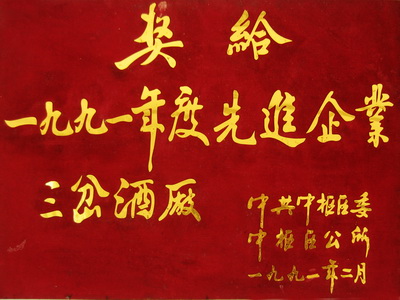 奖给
一九九一年度先進企業
三岔酒厰
中共中枢区委
中枢区公所
一九九二年二月